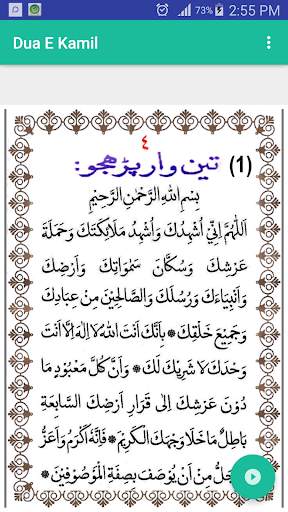 73% 2:55 PM
Dua E Kamil
٤
(1) تين وار پڑھجو:
بِسْمِ اللهِ الرَّحْمٰنِ الرَّحِيْمِ
اَللّٰهُمَّ اِنِّيْ اُشْهِدُكَ وَاُشْهِدُ مَلَائِكَتَكَ وَحَمَلَةَ
عَرْشِكَ وَسُكَّانَ سَمٰوَاتِكَ وَاَرْضِكَ
وَاَنْبِيَاءَكَ وَرُسُلَكَ وَالصَّالِحِيْنَ مِنْ عِبَادِكَ
وَجَمِيْعَ خَلْقِكَ * بِاَنَّكَ اَنْتَ اللهُ لَا اِلٰهَ اِلَّا اَنْتَ
وَحْدَكَ لَا شَرِيْكَ لَكَ * وَاَنَّ كُلَّ مَعْبُوْدٍ مَا
دُوْنَ عَرْشِكَ اِلٰى قَرَارِ اَرْضِكَ السَّابِعَةِ
بَاطِلٌ مَا خَلَا وَجْهَكَ الْكَرِيْمَ * فَاِنَّهُ اَكْرَمُ وَاَعَزُّ
مِنْ اَنْ يُوْصَفَ بِصِفَةِ الْمَوْصُوْفِيْنَ *